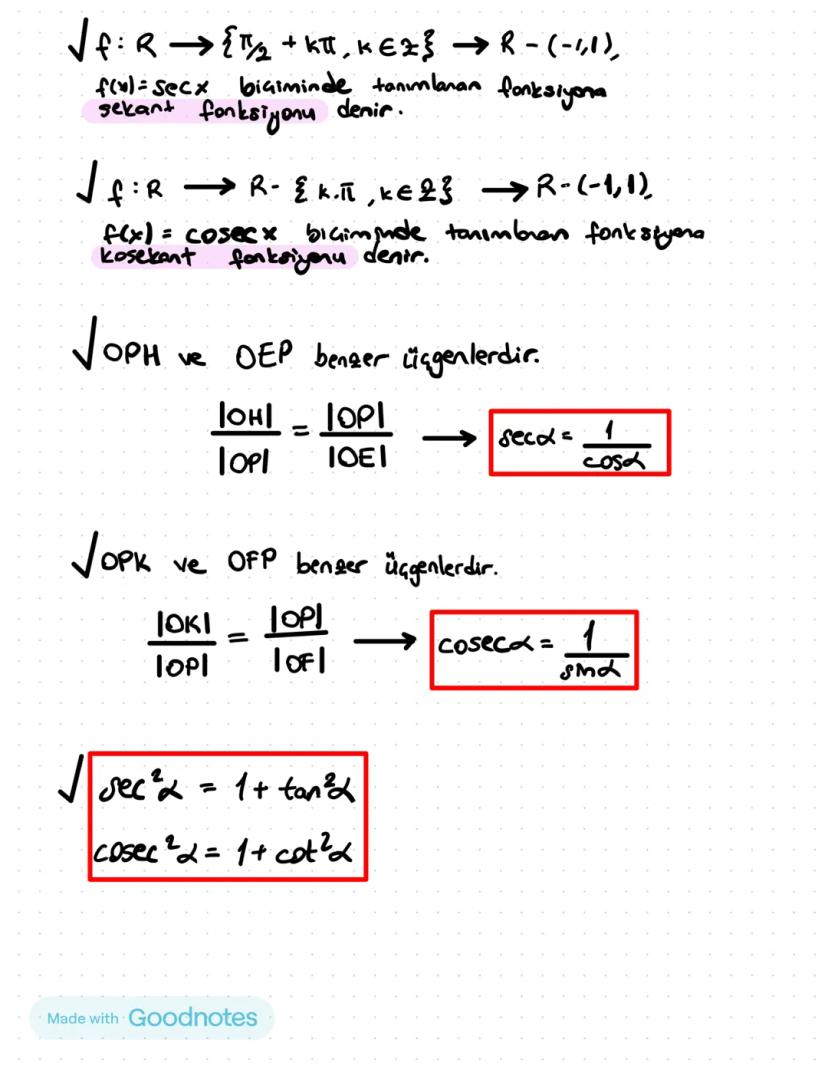 √ f: R → {π/2 + kπ, k ∈ z} → R - (-1,1),
f(x) = secx biçiminde tanımlanan fonksiyona
sekant fonksiyonu denir.
√ f: R → R - { k.π, k ∈ Z} → R - (-1,1),
f(x) = cosecx biçiminde tanımlanan fonksiyona
kosekant fonksiyonu denir.
√ OPH ve OEP benzer üçgenlerdir.
|OH| / |OP| = |OP| / |OE| → secα = 1 / cosα
√ OPK ve OFP benzer üçgenlerdir.
|OK| / |OP| = |OP| / |OF| → cosecα = 1 / sinα
√ sec²α = 1 + tan²α
cosec²α = 1 + cot²α
Made with Goodnotes